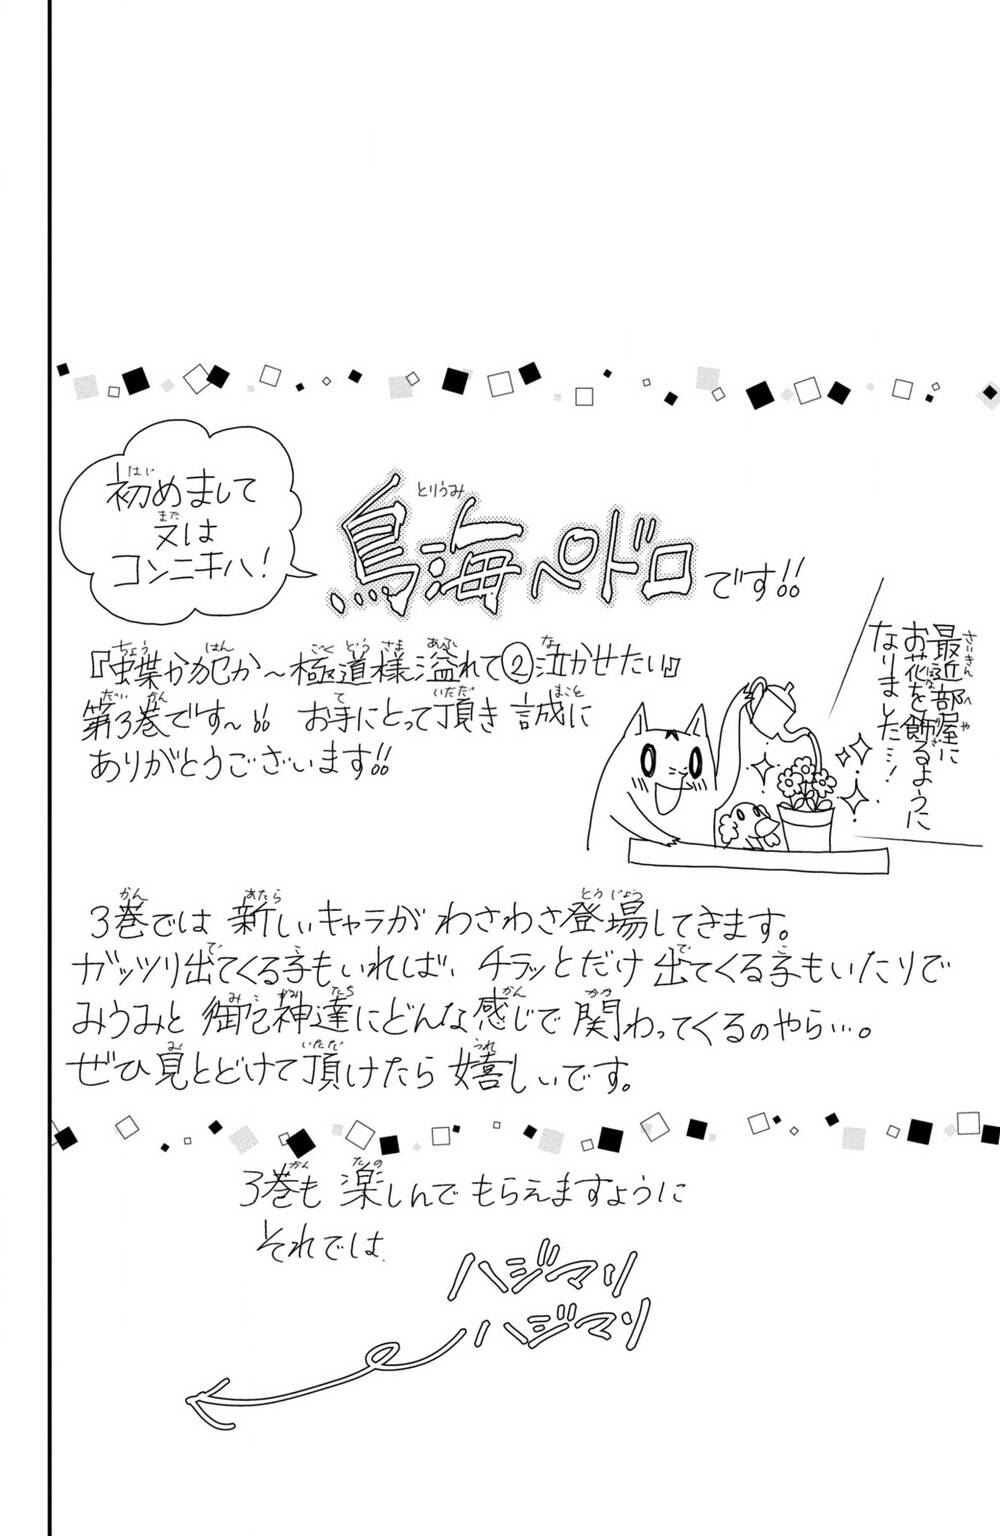 初めまして
又は
コンニチハ!
鳥海ペドロです!!
第3巻です〜!! お手にとって頂き 誠に
ありがとうございます!!
最近部屋に
お花を飾るように
なりました…!
3巻では 新しいキャラが わさわさ登場してきます。
ガッツリ出てくる子もいれば、チラッとだけ 出てくる子もいたりで
みうみと 御神達にどんな感じで 関わってくるのやら…。
ぜひ見とどけて頂けたら 嬉しいです。
3巻も 楽しんで もらえますように
それでは
ハジマリ
ハジマリ